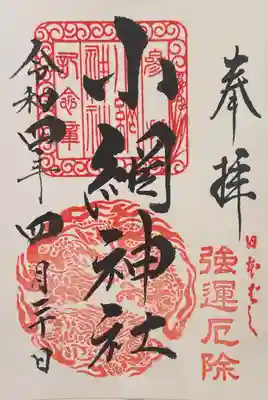 奉拝
日本ばし
強運厄除
小網神社
令和四年四月二十日